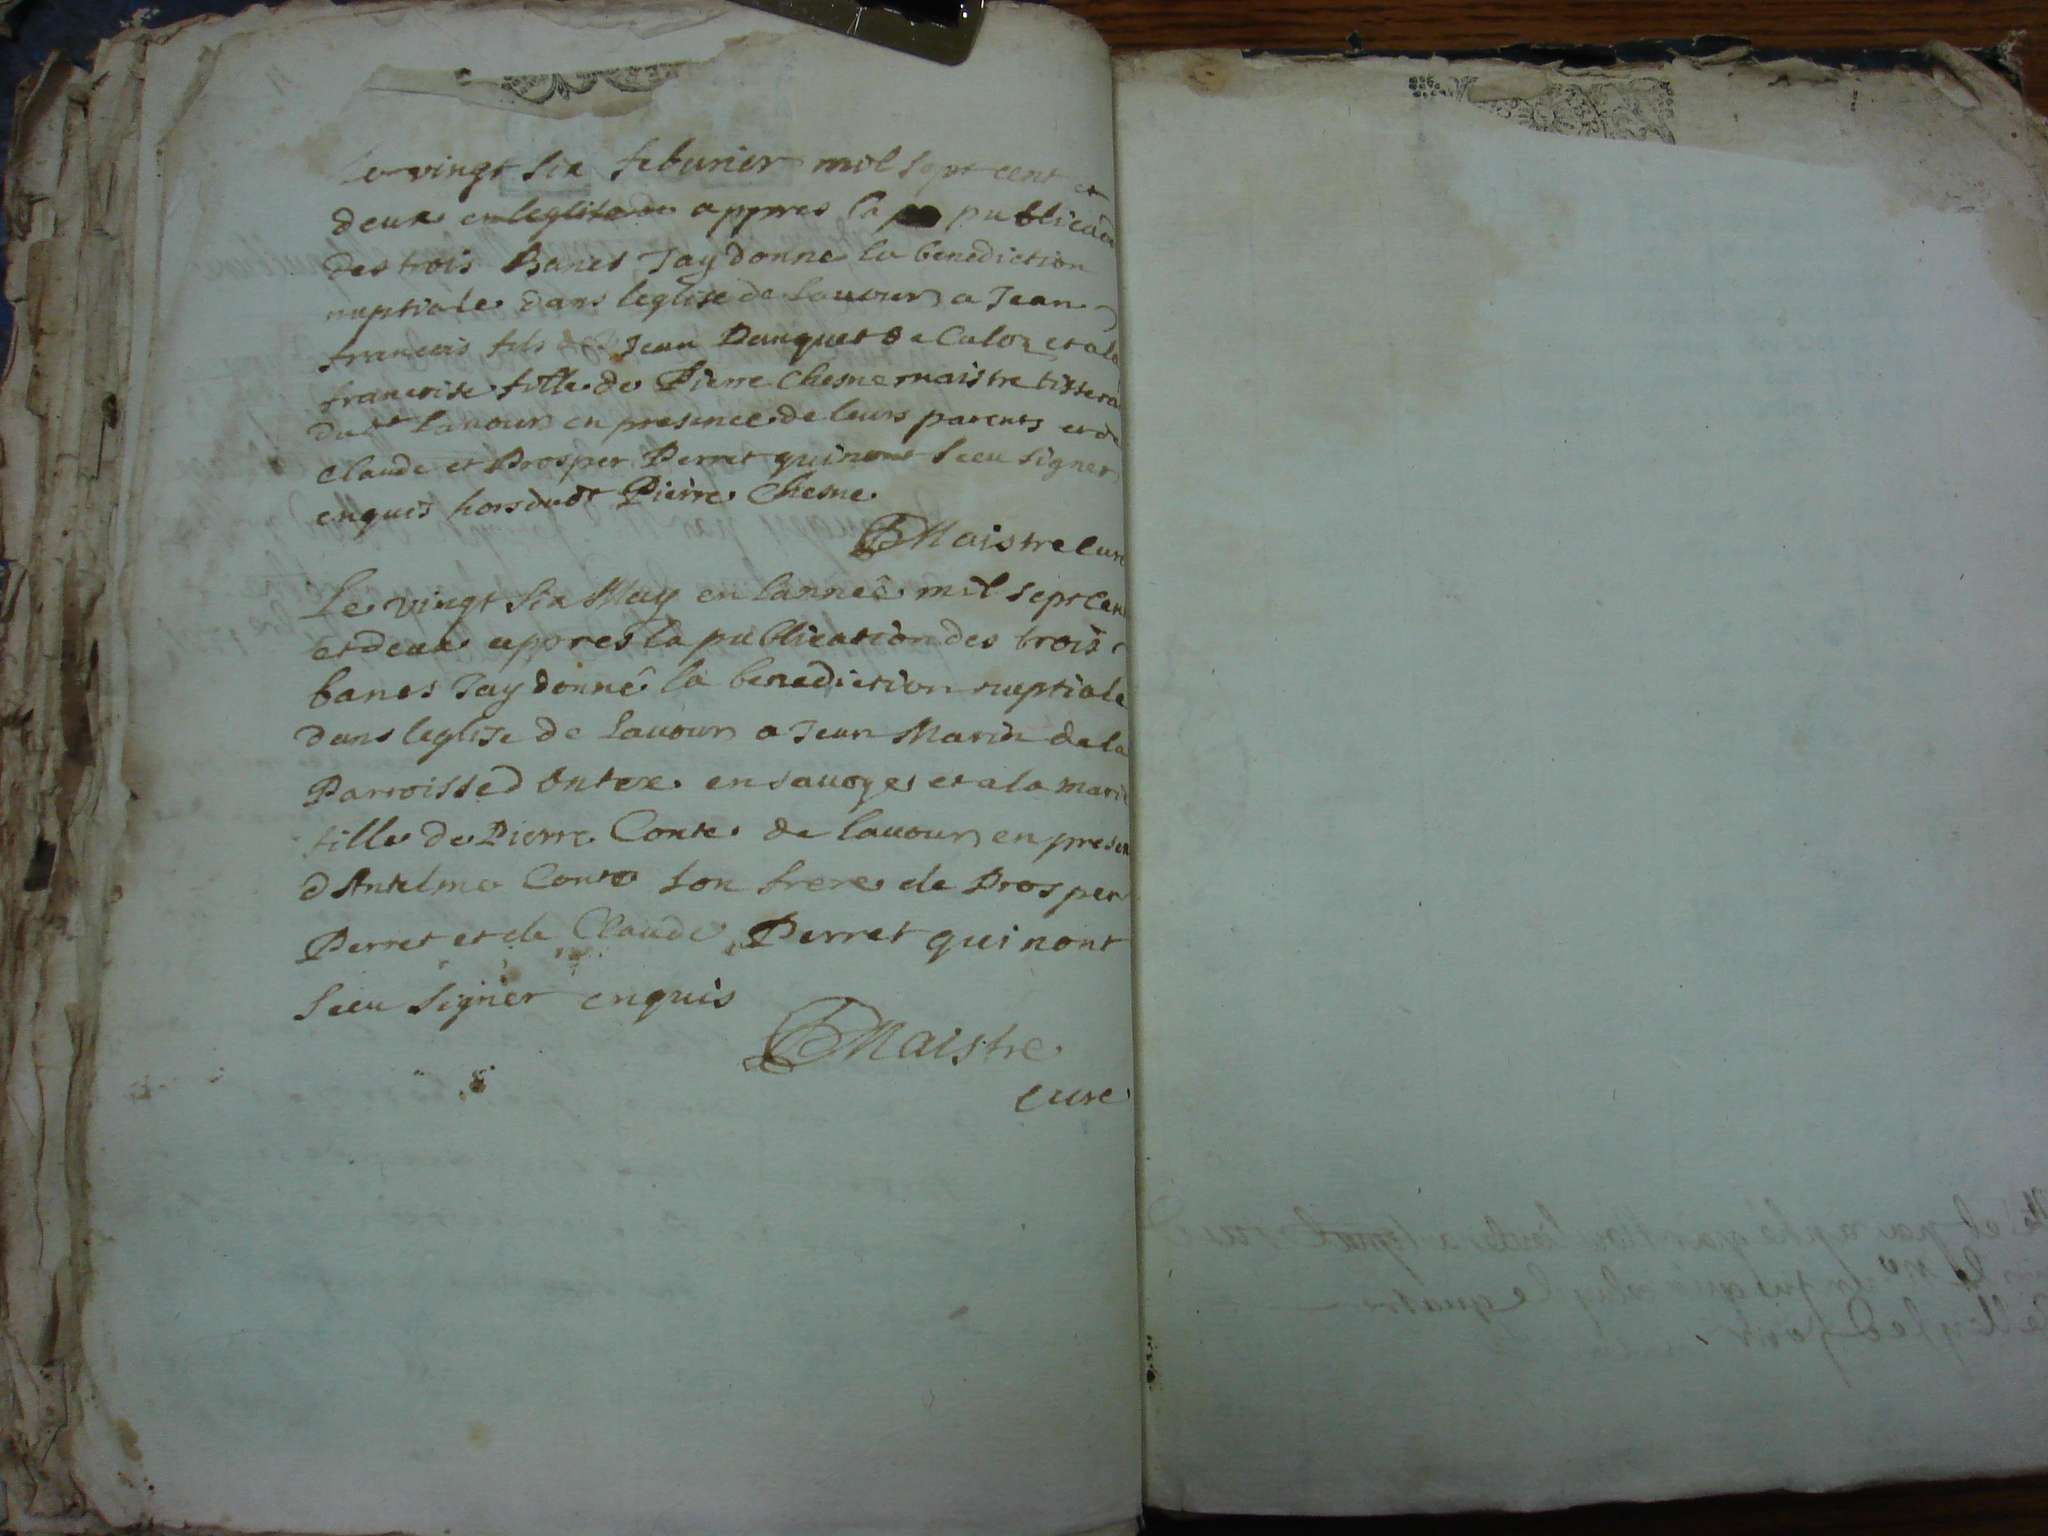 Le vingt six feburier mil sept cent et
deux en leglise de appres la publica͠on
des trois Bancs Jay donne la benediction
nuptiale dans leglise de Lauours a Jean
francois fils de Jean Danquet de Caloz et a la
francoise fille de Pierre Chesne maistre tissera
dudt Lauours en presence de leurs parents et de
Claude et Prosper Perret qui nont sceu signer
enquis hors dudt Pierre Chesne.
Maistre cure
Le vingt six May en lannee mil sept cen
et deux appres la publication des trois
bancs Jay donné la benediction nuptiale
dans leglise de Lauours a Jean Marin de la
Parroisse d Ontex en sauoye et a la marie
fille de Pierre Conte de lauours en presen
d Antelme Conte son frere de Prosper
Perret et de Claude Perret qui nont
sceu signer enquis
Maistre
cure